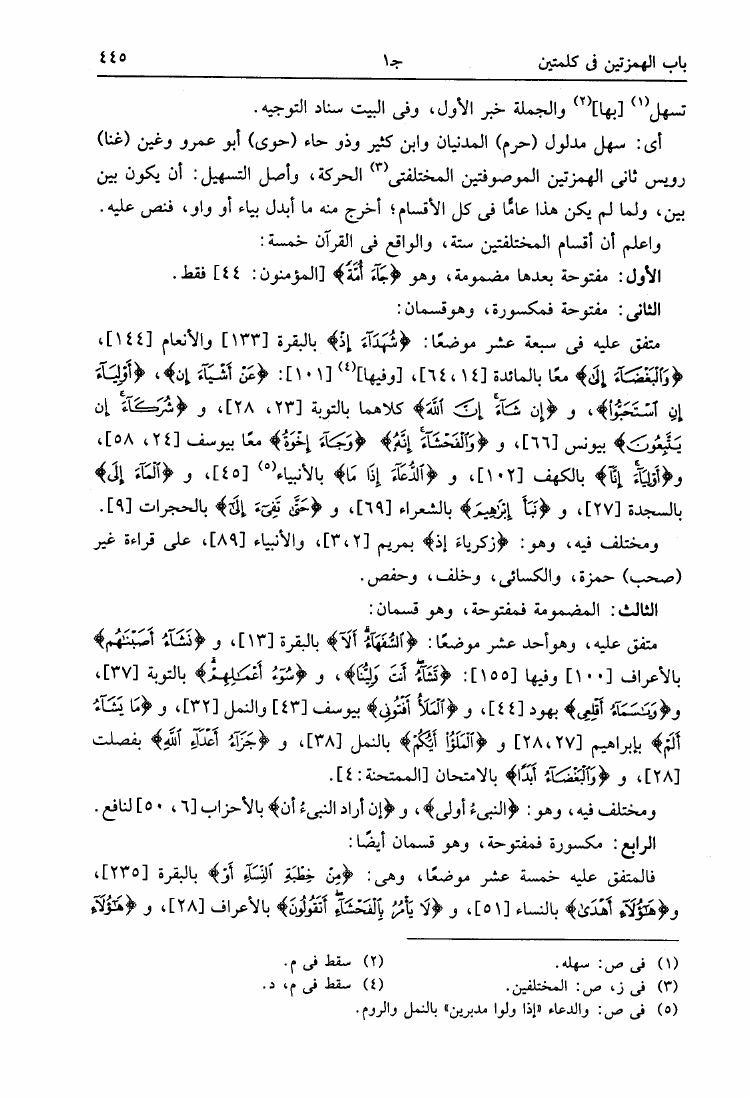 باب الهمزتين فى كلمتين جـ١ ٤٤٥
تسهل(١) [بها](٢) والجملة خبر الأول، وفى البيت سناد التوجيه.
أى: سهل مدلول (حرم) المدنيان وابن كثير وذو حاء (حوى) أبو عمرو وغين (غنا)
رويس ثانى الهمزتين الموصوفتين المختلفتى(٣) الحركة، وأصل التسهيل: أن يكون بين
بين، ولما لم يكن هذا عامًّا فى كل الأقسام؛ أخرج منه ما أبدل بياء أو واو، فنص عليه.
واعلم أن أقسام المختلفتين ستة، والواقع فى القرآن خمسة:
الأول: مفتوحة بعدها مضمومة، وهو ﴿جَآءَ أُمَّةً﴾ [المؤمنون: ٤٤] فقط.
الثانى: مفتوحة فمكسورة، وهوقسمان:
متفق عليه فى سبعة عشر موضعًا: ﴿شُهَدَآءَ إِذْ﴾ بالبقرة [١٣٣] والأنعام [١٤٤]،
﴿وَالْبَغْضَآءَ إِلَىٰ﴾ معًا بالمائدة [١٤، ٦٤]، [وفيها](٤) [١٠١]: ﴿عَنْ أَشْيَآءَ إِن﴾، ﴿أَوْلِيَآءَ
إِنِ اسْتَحَبُّوا﴾، و ﴿إِن شَآءَ إِنَّ اللَّهَ﴾ كلاهما بالتوبة [٢٣، ٢٨]، و ﴿شُرَكَآءَ إِن
يَتَّبِعُونَ﴾ بيونس [٦٦]، و ﴿وَالْفَحْشَآءَ إِنَّهُ﴾ ﴿وَجَآءَ إِخْوَةُ﴾ معًا بيوسف [٢٤، ٥٨]،
و﴿أَوْلِيَآءَ إِنَّا﴾ بالكهف [١٠٢]، و ﴿الدُّعَآءَ إِذَا مَا﴾ بالأنبياء(٥) [٤٥]، و ﴿الْمَآءَ إِلَى﴾
بالسجدة [٢٧]، و ﴿نَبَأَ إِبْرَٰهِيمَ﴾ بالشعراء [٦٩]، و ﴿حَتَّىٰ تَفِىٓءَ إِلَىٰٓ﴾ بالحجرات [٩].
ومختلف فيه، وهو: ﴿زكرياءَ إذ﴾ بمريم [٢، ٣]، والأنبياء [٨٩]، على قراءة غير
(صحب) حمزة، والكسائى، وخلف، وحفص.
الثالث: المضمومة فمفتوحة، وهو قسمان:
متفق عليه، وهوأحد عشر موضعًا: ﴿السُّفَهَآءُ أَلَآ﴾ بالبقرة [١٣]، و ﴿نَشَآءُ أَصَبْنَٰهُم﴾
بالأعراف [١٠٠] وفيها [١٥٥]: ﴿تَشَآءُ أَنتَ وَلِيُّنَا﴾، و ﴿سُوٓءُ أَعْمَٰلِهِمْ﴾ بالتوبة [٣٧]،
و﴿وَيَٰسَمَآءُ أَقْلِعِى﴾ بهود [٤٤]، و ﴿الْمَلَأُ أَفْتُونِى﴾ بيوسف [٤٣] والنمل [٣٢]، و ﴿مَا يَشَآءُ
أَلَمْ﴾ بإبراهيم [٢٧، ٢٨] و ﴿الْمَلَؤُا أَيُّكُمْ﴾ بالنمل [٣٨]، و ﴿جَزَآءُ أَعْدَآءِ اللَّهِ﴾ بفصلت
[٢٨]، و ﴿وَالْبَغْضَآءُ أَبَدًا﴾ بالامتحان [الممتحنة: ٤].
ومختلف فيه، وهو: ﴿النبىءُ أولى﴾، و ﴿إن أراد النبىءُ أن﴾ بالأحزاب [٦، ٥٠] لنافع.
الرابع: مكسورة فمفتوحة، وهو قسمان أيضًا:
فالمتفق عليه خمسة عشر موضعًا، وهى: ﴿مِنْ خِطْبَةِ النِّسَآءِ أَوْ﴾ بالبقرة [٢٣٥]،
و﴿هَٰٓؤُلَآءِ أَهْدَىٰ﴾ بالنساء [٥١]، و ﴿لَا يَأْمُرُ بِالْفَحْشَآءِ أَتَقُولُونَ﴾ بالأعراف [٢٨]، و ﴿هَٰٓؤُلَآءِ
(١) فى ص: سهله. (٢) سقط فى م.
(٣) فى ز، ص: المختلفين. (٤) سقط فى م، د.
(٥) فى ص: والدعاء «إذا ولوا مدبرين» بالنمل والروم.